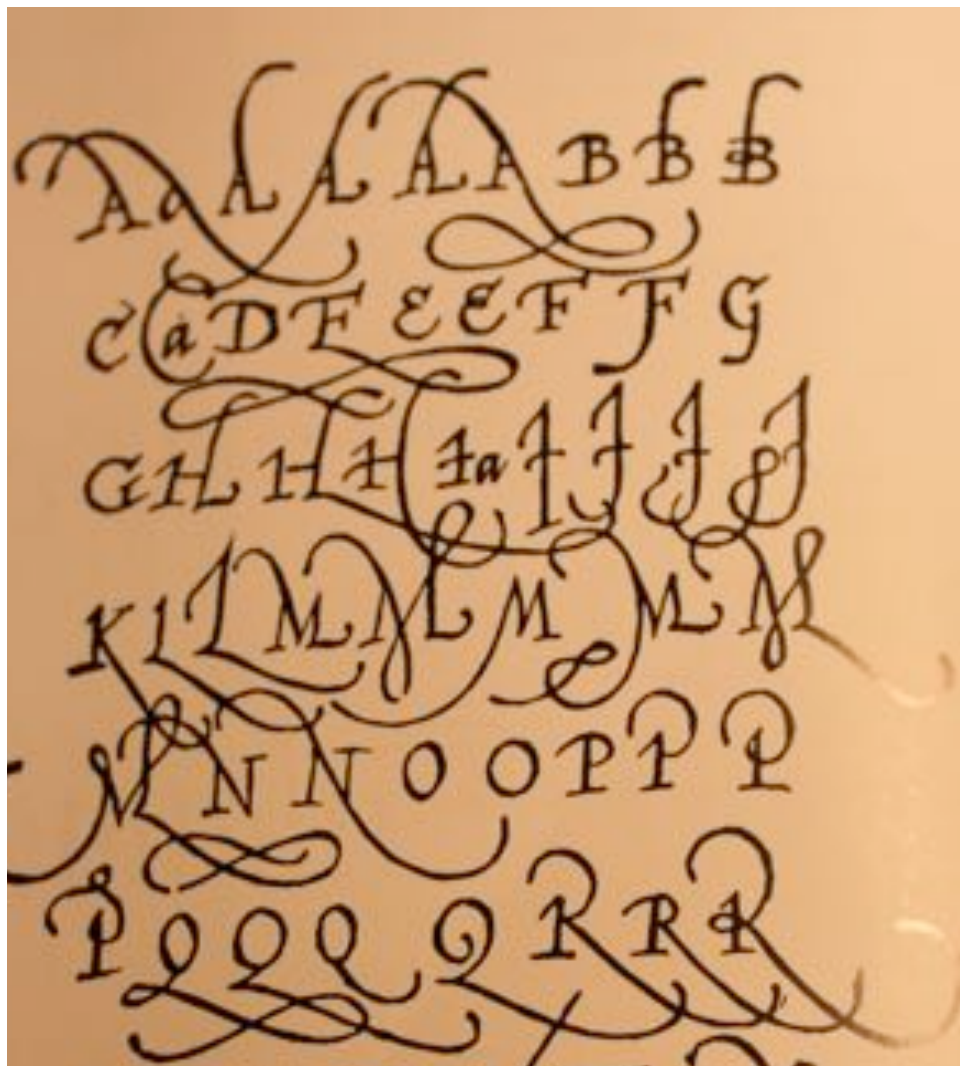 A a A A A A B B B
C Ca D E E E F F G
G H H H I a I J J J
K L L M M M M M
N N N O O P P P
P Q Q Q Q R R R